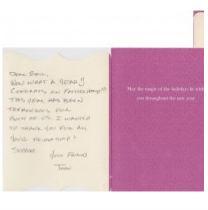 DEAR
WOW WHAT A YEAR!!
CONGRATS ON FATHERHOOD!!!
THIS YEAR HAS BEEN
TREMENDOUS FOR
BOTH OF US. I WANTED
TO THANK YOU FOR ALL
YOUR FRIENDSHIP &
SUPPORT.
YOUR FRIEND
May the magic of the holidays be with
you throughout the new year